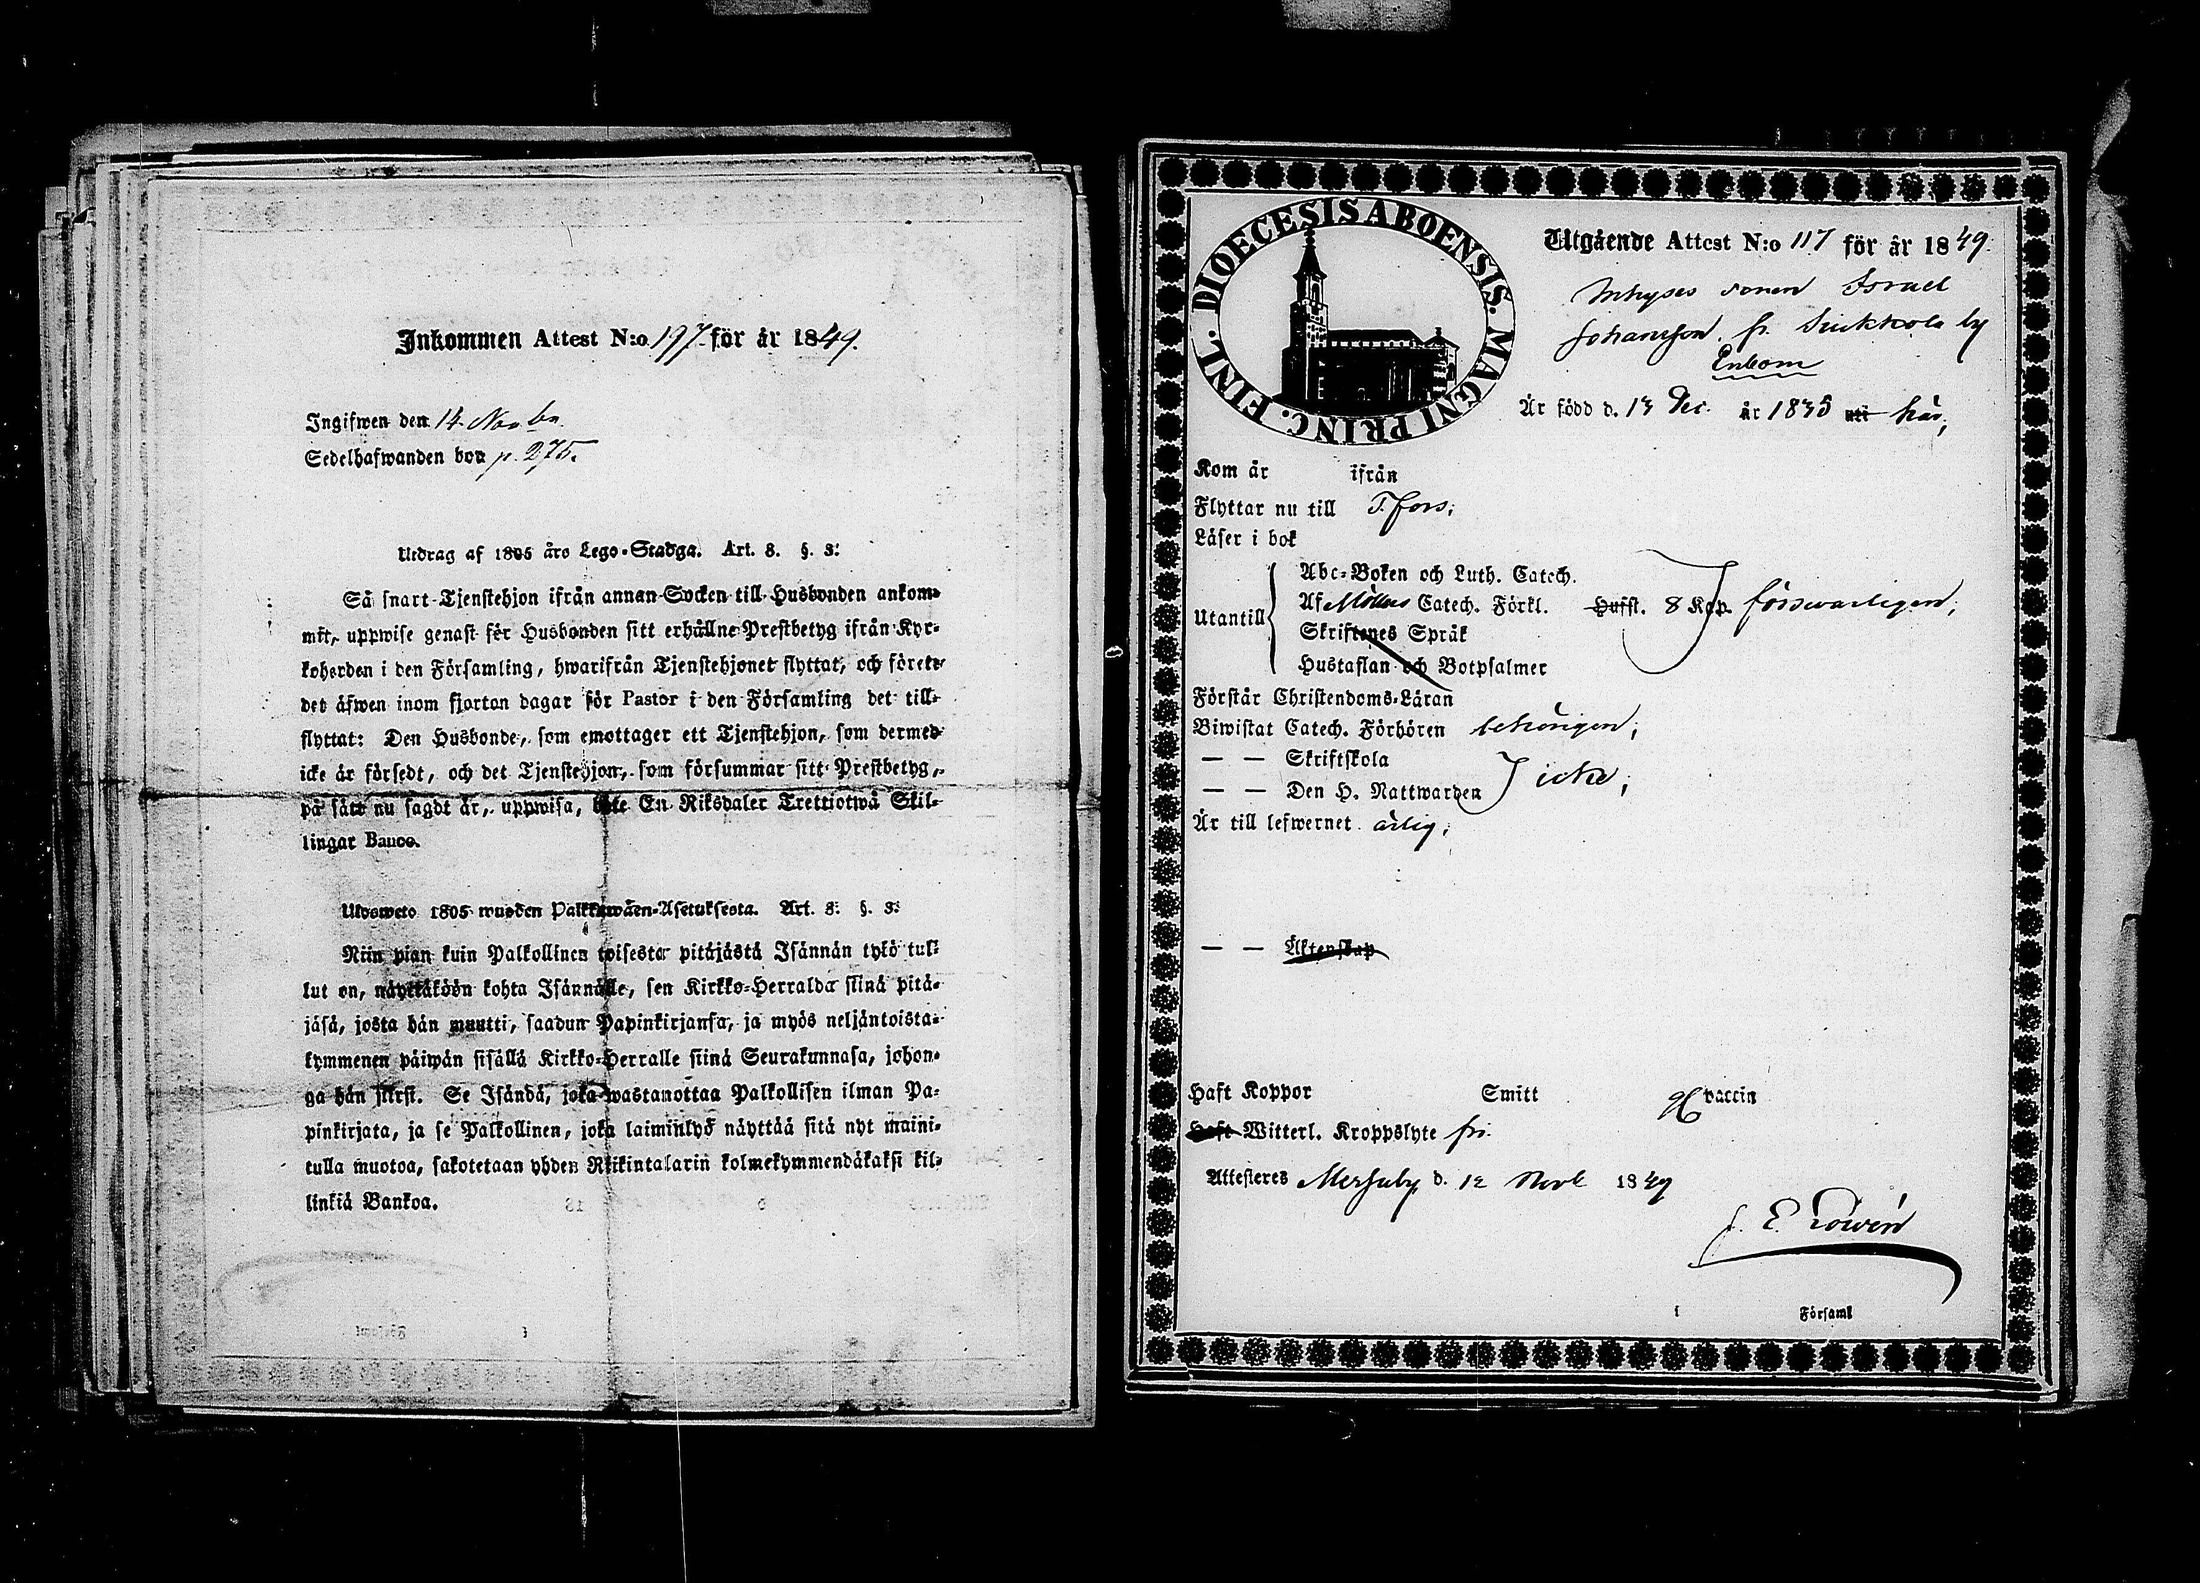 Inkommen Attest N:o 197 för år 1849.
Ingifwen den 14 Novbr
Sedelhafwanden bor p. 275.
Utdrag af 1805 års Lego-Stadga. Art. 8. §. 3:
Så snart Tjenstehjon ifrån annan Socken till Husbonden ankom-
mit, uppwise genast för Husbonden sitt erhållne Prestbetyg ifrån Kyr-
koherden i den Församling, hwarifrån Tjenstehjonet flyttat, och förete
det äfwen inom fjorton dagar för Pastor i den Församling det till-
flyttat: Den Husbonde, som emottager ett Tjenstehjon, som dermed
icke är försedt, och det Tjenstehjon, som försummar sitt Prestbetyg,
på sätt nu sagdt är, uppwisa, böte En Riksdaler Trettiotwå Skil-
lingar Banco.
Ulosweto 1805 wuoden Palkkawäen-Asetuksesta. Art. 8: §. 3:
Niin pian kuin Palkollinen toisesta pitäjästä Isännän tykö tul-
lut on, näyttäköön kohta Isännälle, sen Kirkko-Herralda siinä pitä-
jäsä, josta hän muutti, saadun Papinkirjansa, ja myös neljäntoista-
kymmenen päiwän sisällä Kirkko-Herralle siinä Seurakunnasa, johon-
ga hän siirsi. Se Isändä, joka wastanottaa Palkollisen ilman Pa-
pinkirjata, ja se Palkollinen, joka laiminlyö näyttää sitä nyt maini-
tulla muotoa, sakotetaan yhden Riikintalarin kolmekymmendäkaksi kil-
linkiä Bankoa.
DIOECESIS ABOENSIS. MAGNI PRINC. FINL.
Utgående Attest N:o 117 för år 1849.
Inhyses sonen Israel
Johansson fr. by
Enbom
Är född d. 13 Dec. år 1835 uti här;
Kom år ifrån
Flyttar nu till T.fors;
Läser i bok
Abc-Boken och Luth. Catech.
Utantill Af Möllers Catech. Förkl. Hufst. 8 Kap. försvarligen;
Skriftenes Språk
Hustaflan och Botpsalmer
Förstår Christendoms-Läran
Biwistat Catech. Förhören behörigen;
— — Skriftskola
— — Den H. Nattwarden icke;
Är till lefwernet ärlig;
— — Äktenskap
Haft Koppor Smitt vaccin
Haft Witterl. Kroppslyte fri.
Attesteres d. 12 Novb 1849
J. E.
i Församl